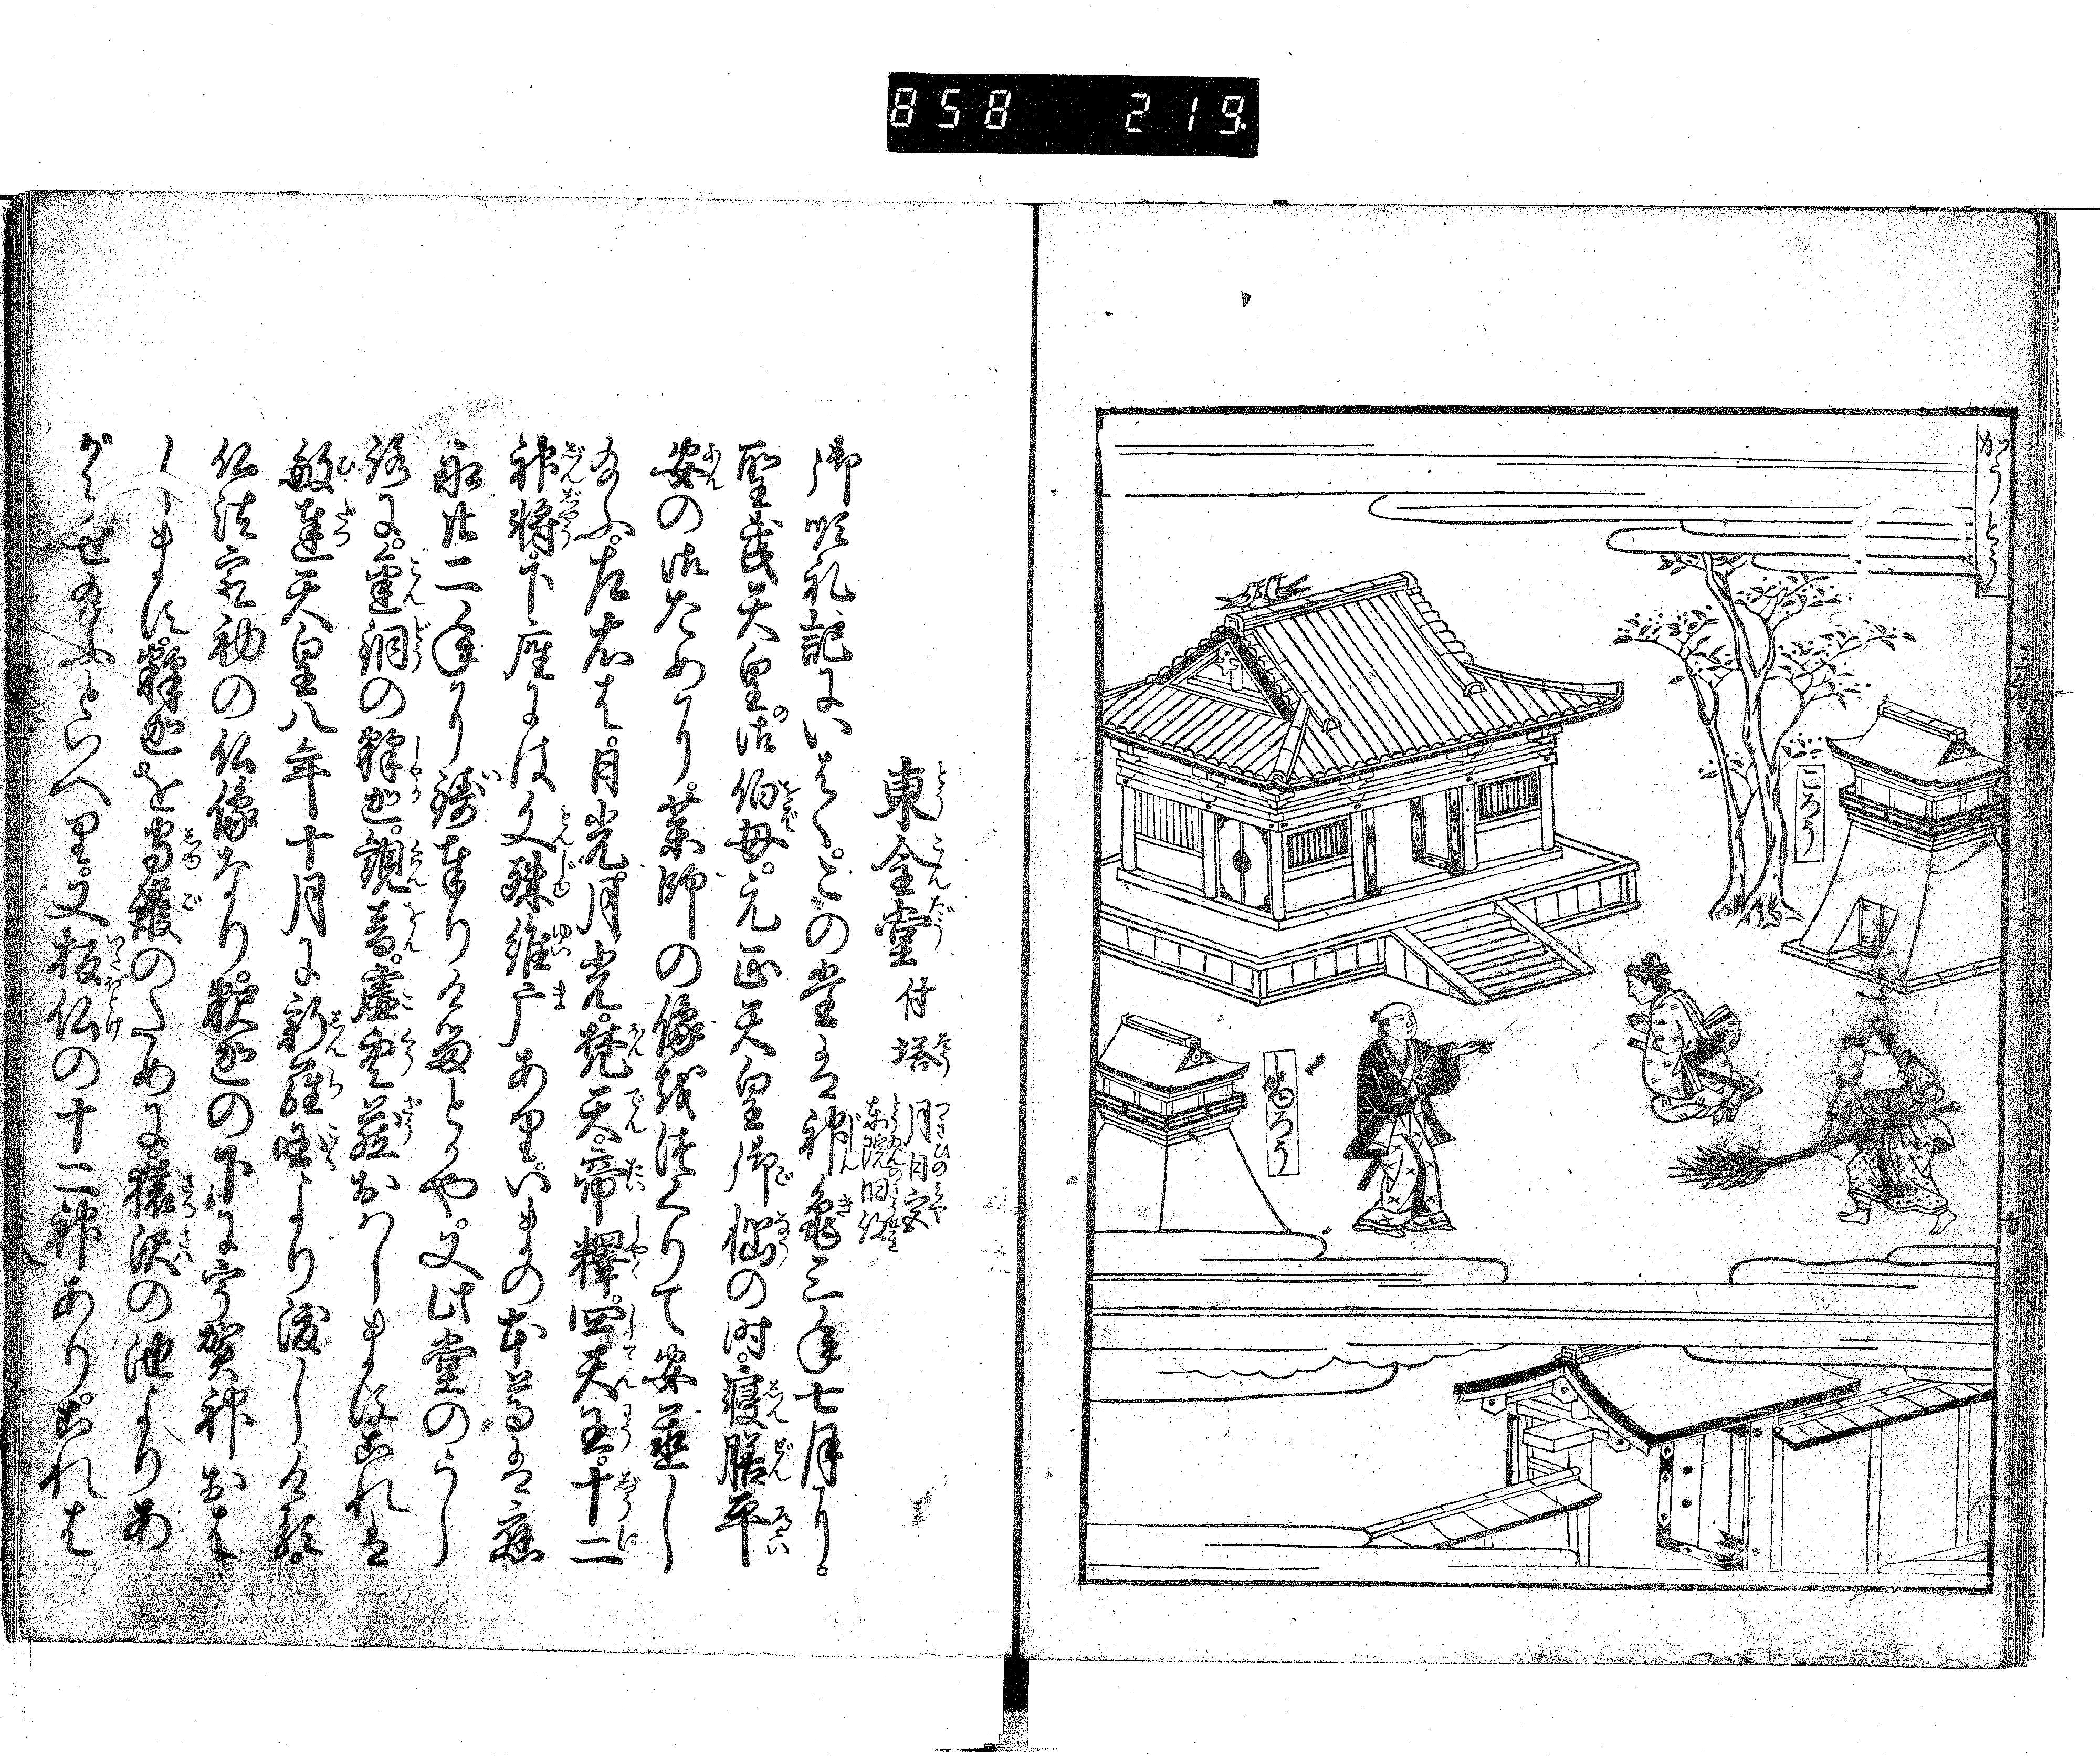 858 219
かうとう
ころう
しゆろう
東金堂付塔 月日宮 東院旧跡
御順礼記にいはくこの堂は神亀三年七月に。
聖武天皇。御伯母。元正天皇御悩の時。寝膳平
安の御ためり。薬師の像を
給ふ。左右は。日光月光。梵天。帝釋。四天王。十二
神将。下座には文殊維广あり。いまの本尊は應
永廿二年に鋳奉りけるとかや。又此堂のうし
ろに。金銅の釋迦。観音。虚空蔵おはしますこれは
敏達天皇八年十月に新羅国より渡しける。
仏法最初の仏像なり。釈迦の下に宇賀神おは
します。釋迦を守護のために。猿沢の池よりあ
がらせ給ふといへり。又板仏の十二神あり。これは